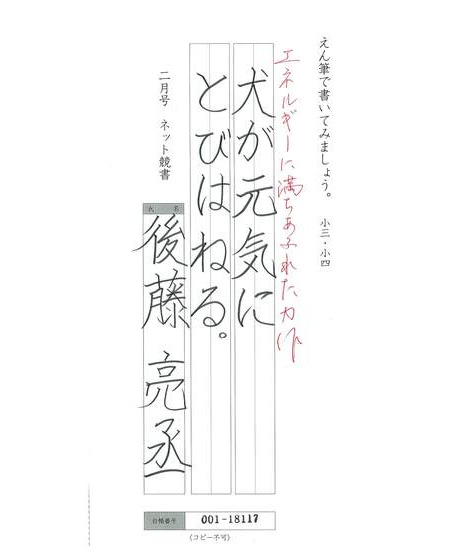 えん筆で書いてみましょう。 小三・小四
エネルギーに満ちあふれた力作
犬が元気に
とびはねる。
二月号 ネット競書
氏名
後藤亮丞
台帳番号 001-18117
(コピー不可)